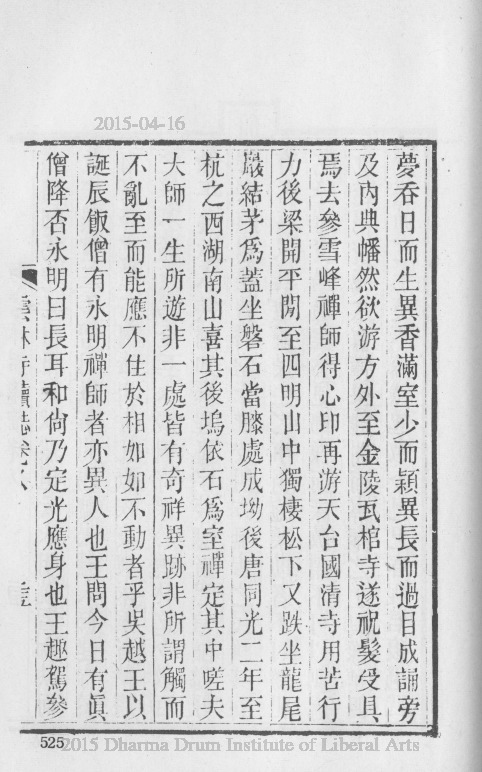 2015-04-16
夢吞日而生異香滿室少而穎異長而過目成誦旁
及內典幡然欲游方外至金陵瓦棺寺遂祝髮受具
焉去參雪峰禪師得心印再游天台國清寺用苦行
力後梁開平閒至四明山中獨棲松下又趺坐龍尾
巖結茅爲蓋坐磐石當膝處成坳後唐同光二年至
杭之西湖南山喜其後塢依石爲室禪定其中嗟夫
大師一生所遊非一處皆有奇祥異跡非所謂觸而
不亂至而能應不住於相如如不動者乎吳越王以
誕辰飯僧有永明禪師者亦異人也王問今日有眞
僧降否永明曰長耳和尙乃定光應身也王趣駕參
雲林寺續志卷八
525
2015 Dharma Drum Institute of Liberal Arts